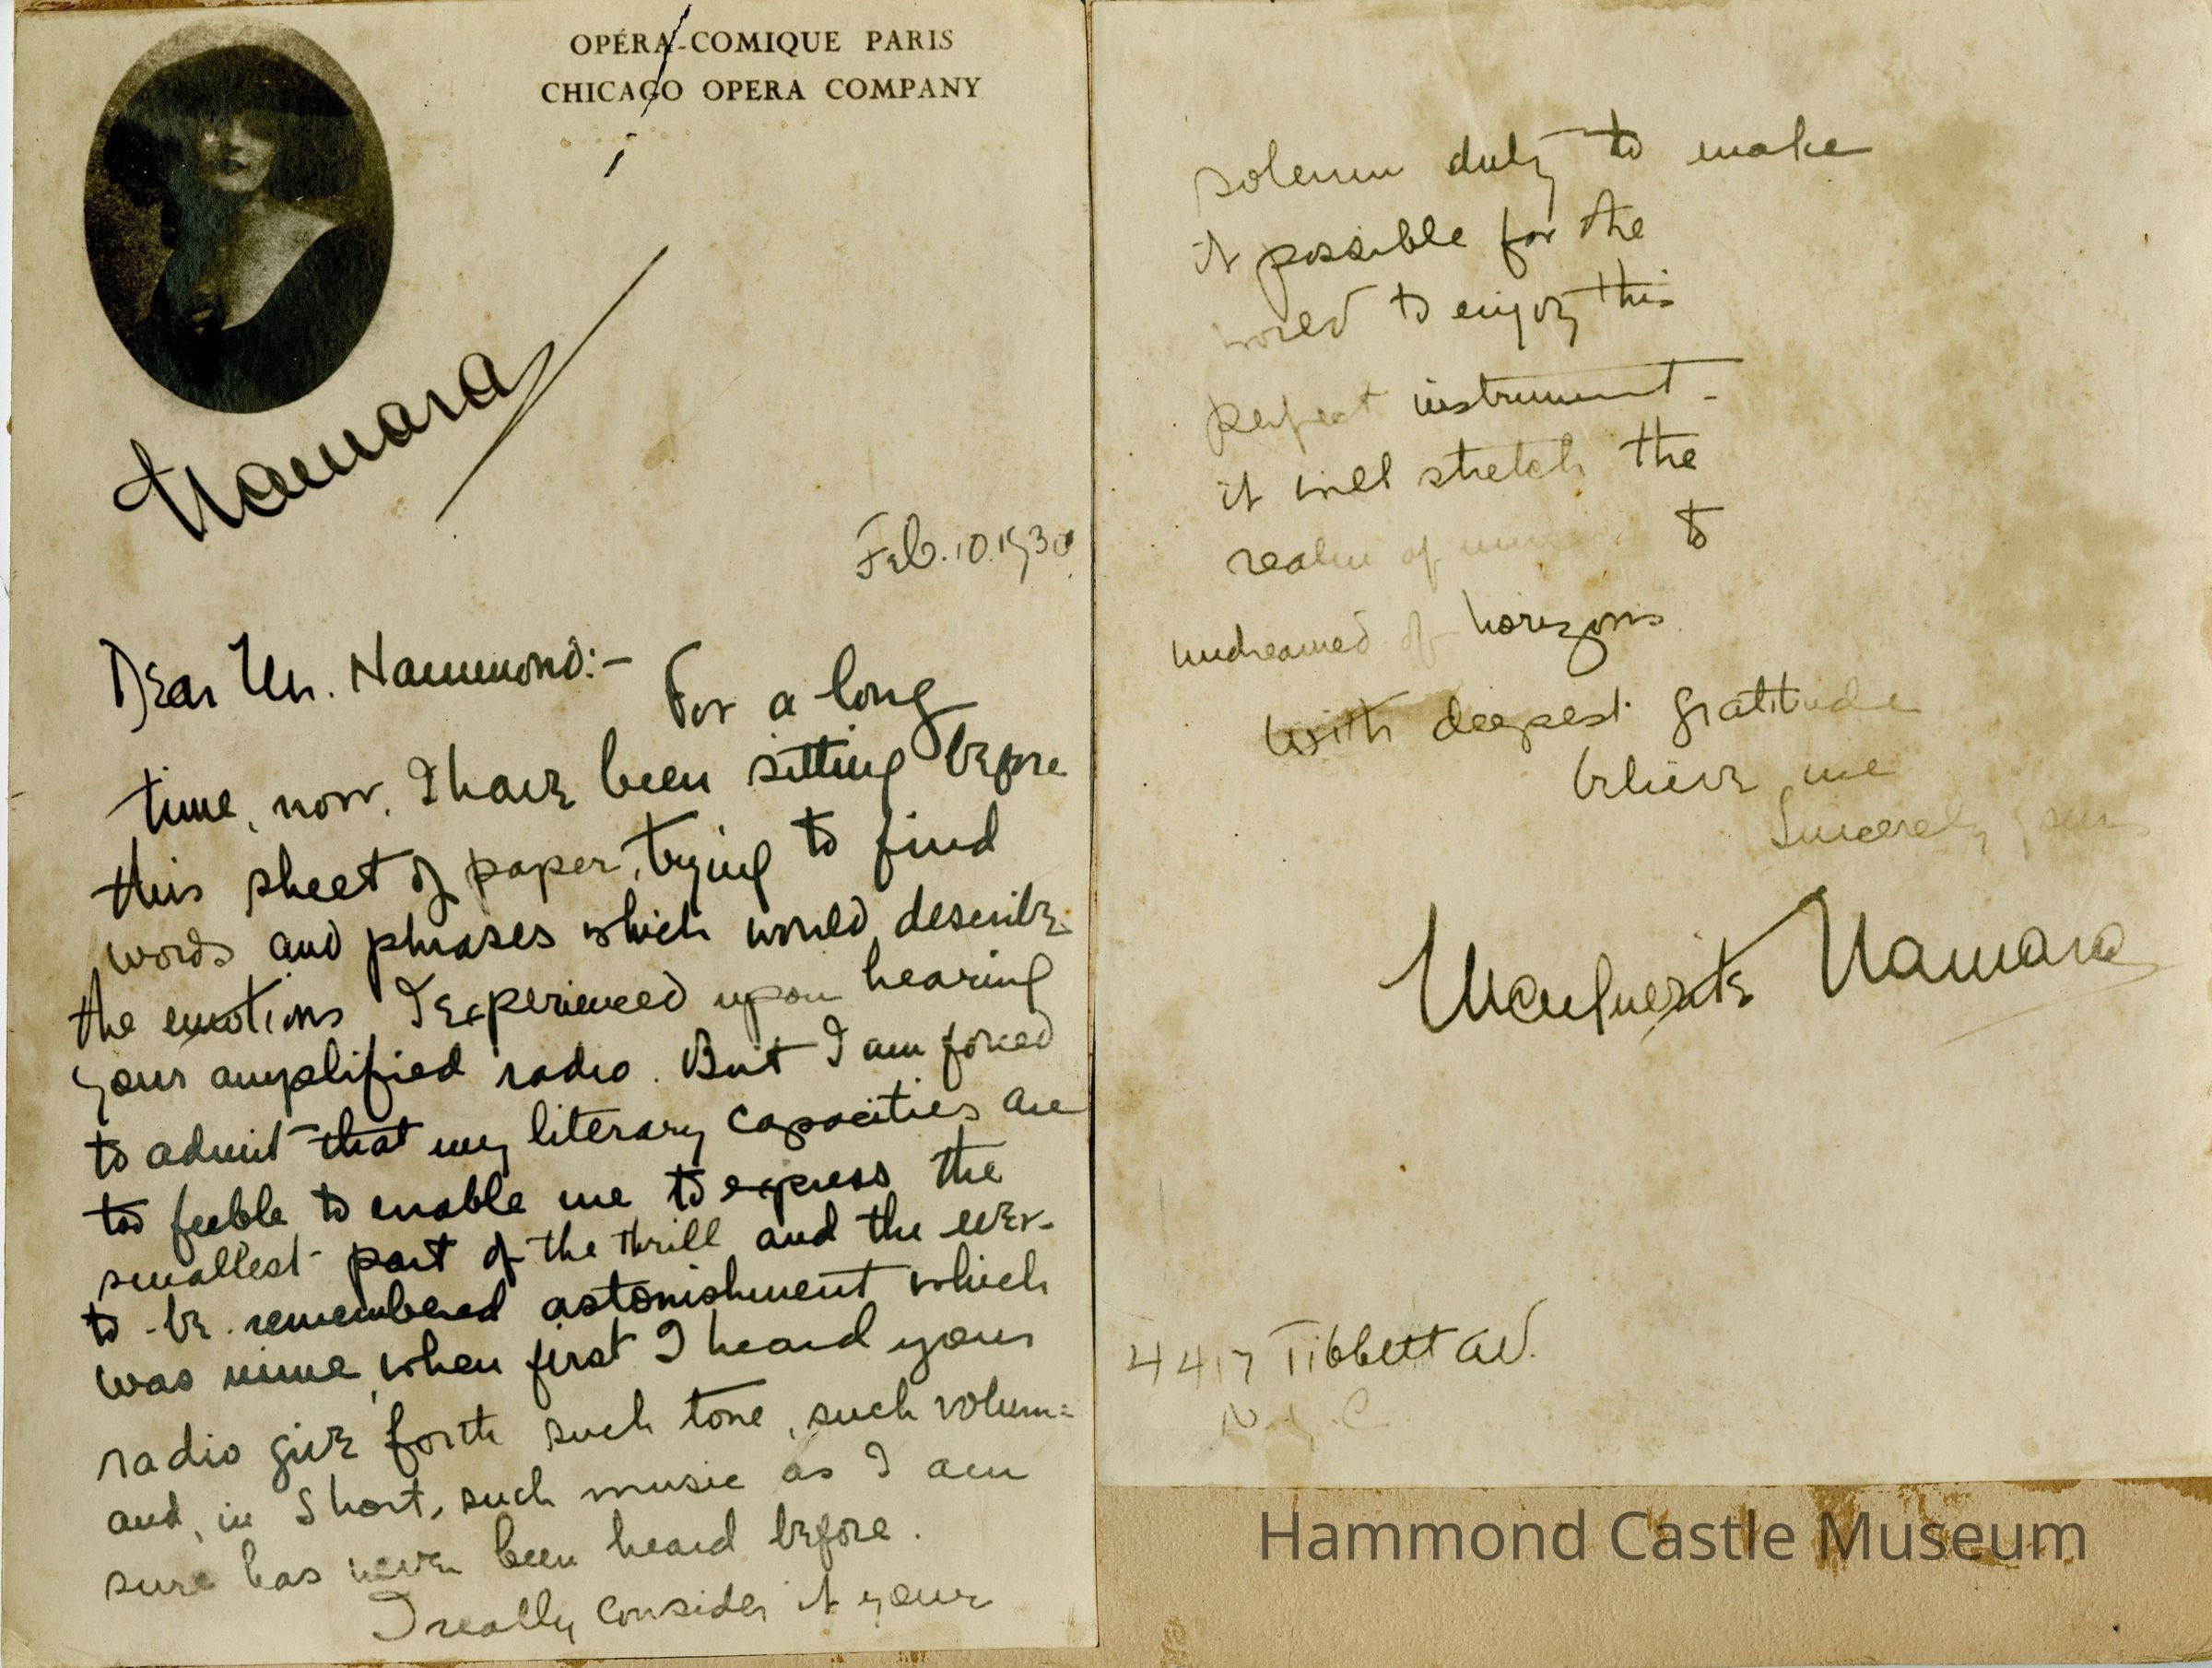 OPÉRA-COMIQUE PARIS
CHICAGO OPERA COMPANY
Namara
Feb. 10. 1930
Dear Mr. Hammond:-
For a long
time, now, I have been sitting before
this sheet of paper, trying to find
words and phrases which would describe
the emotions I experienced upon hearing
your amplified radio. But I am forced
to admit that my literary capacities are
too feeble to enable me to express the
smallest part of the thrill and the ever-
to-be-remembered astonishment which
was mine, when first I heard your
radio give forth such tone, such volum=
and, in short, such music as I am
sure has never been heard before.
I really consider it your
solemn duty to make
it possible for the
world to enjoy this
perfect instrument -
it will stretch the
realm of to
undreamed of horizons
with deepest gratitude
believe me
Sincerely yours
Marguerite Namara
4417 Tibbett Av.
N.Y.C
Hammond Castle Museum